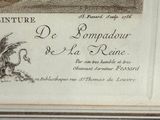 EINTURE
St. Fessard Sculp. 1756
De Pompadour
de La Reine.
Par son tres humble et tres
Obeissant Serviteur Fessard
Bibliotheque rue St. Thomas du Louvre